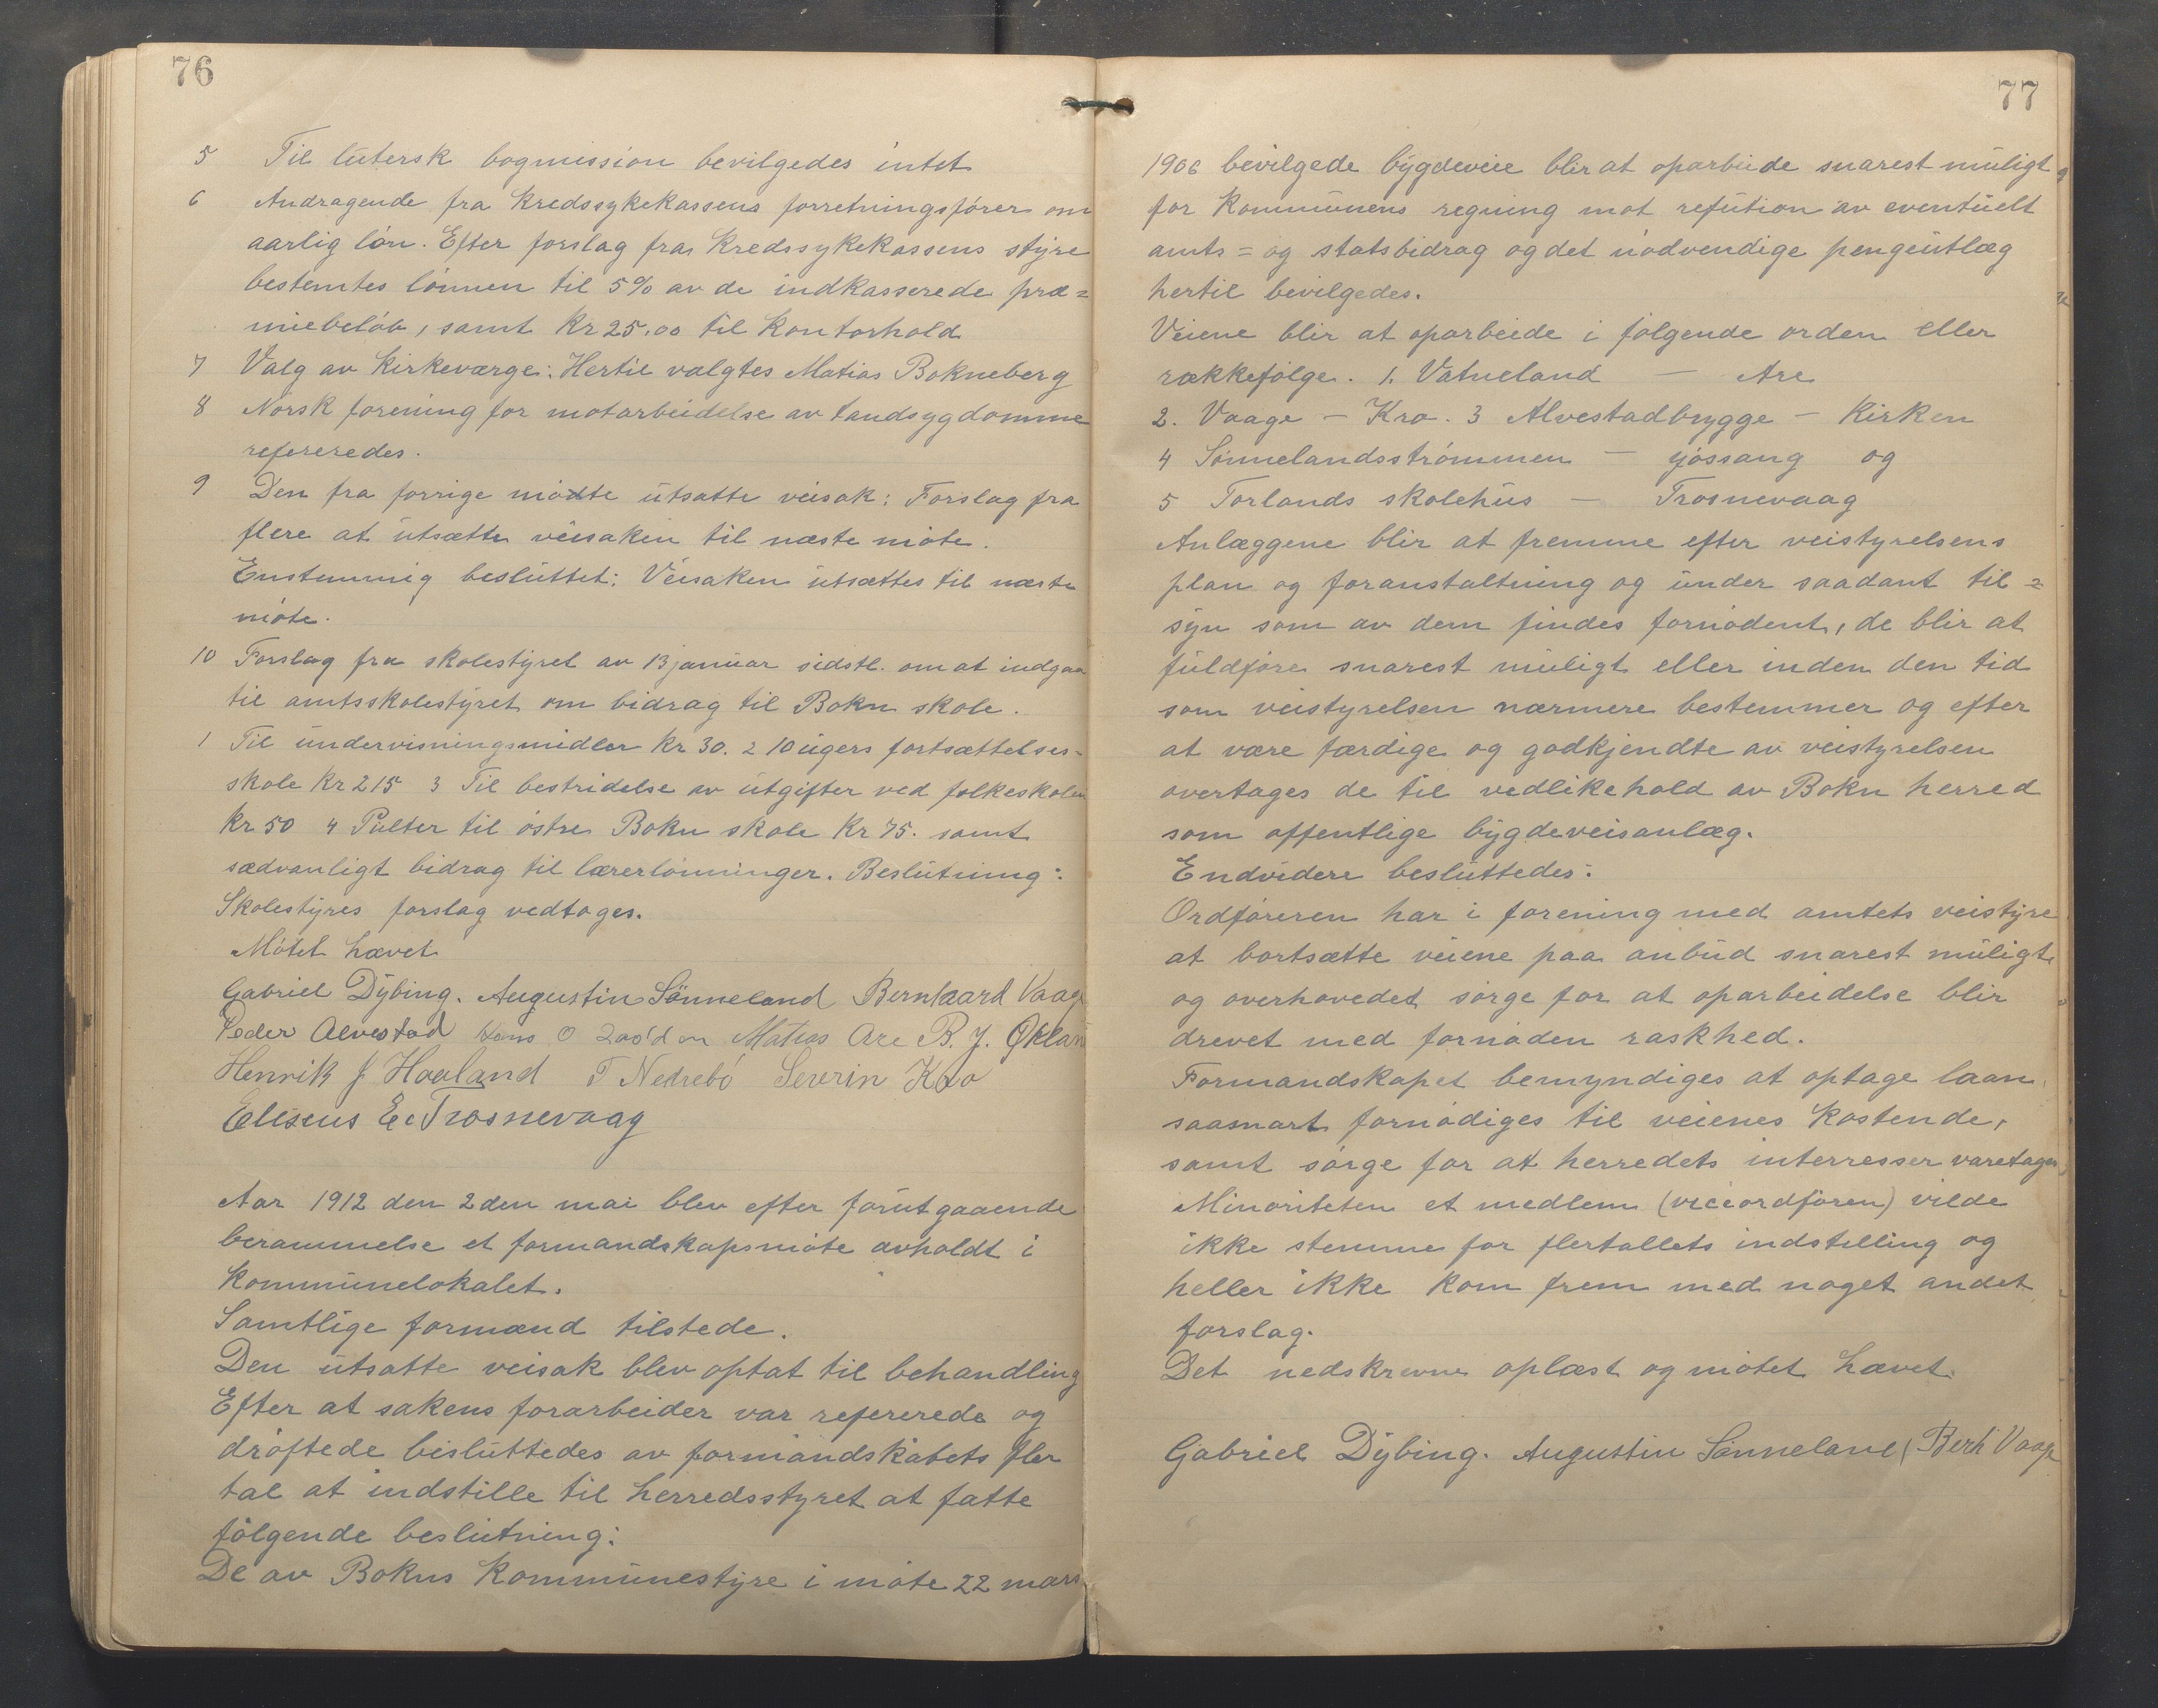 76
5 Til lutersk bogmission bevilgedes intet
6 Andragende fra Kredssykekassens forretningsfører om
aarlig løn. Efter forslag fra Kredssykekassens styre
bestemtes lønnen til 5% av de indkasserede præ=
miebeløb, samt Kr 25,00 til Kontorhold
7 Valg av Kirkeværge: Hertil valgtes Matias Bokneberg
8 Norsk forening for motarbeidelse av tandsygdomme
refereredes.
9 Den fra forrige mødte utsatte veisak: Forslag fra
flere at utsætte veisaken til næste møte.
Enstemmig besluttet: Veisaken utsættes til næste
møte.
10 Forslag fra skolestyret av 13 januar sidstl. om at indgaa
til amtsskolestyret om bidrag til Bokn skole.
1 Til undervisningsmidler Kr 30. 2 10 ugers fortsættelses-
skole Kr 215 3 Til bestridelse av utgifter ved folkeskolen
Kr 50 4 Pulter til østre Bokn skole Kr 75. samt
sædvanligt bidrag til lærerlønninger. Beslutning:
Skolestyres forslag vedtoges.
Møtet hævet
Gabriel Dybing. Augustin Sønneland Berntaard Vaage
Peder Alvestad Hans O Matias Are B. J. Øklan
Henrik J Haaland T Nedrebø Severin Kro
Eliseus E. Trosnevaag
Aar 1912 den 2den mai blev efter forutgaaende
berammelse et formandskapsmøte avholdt i
Kommunelokalet.
Samtlige formænd tilstede.
Den utsatte veisak blev optat til behandling
Efter at sakens forarbeider var refererede og
drøftede besluttedes av formandskabets fler
tal at indstille til herredsstyret at fatte
følgende beslutning:
De av Bokns Kommunestyre i møte 22 mars
77
1906 bevilgede bygdeveie blir at oparbeide snarest muligt
for Kommunens regning mot refution av eventuelt
amts= og statsbidrag og det nødvendige pengeutlæg
hertil bevilgedes.
Veiene blir at oparbeide i følgende orden eller
rækkefølge. 1. Vatneland — Are
2. Vaage — Kro. 3 Alvestadbrygge — Kirken
4 Sønnelandsstrømmen — Gjøssang og
5 Torlands skolehus — Trosnevaag
Anlæggene blir at fremme efter veistyrelsens
plan og foranstaltning og under saadant til=
syn som av dem findes fornødent, de blir at
fuldføre snarest muligt eller inden den tid
som veistyrelsen nærmere bestemmer og efter
at være færdige og godkjendte av veistyrelsen
overtages de til vedlikehold av Bokn herred
som offentlige bygdeveisanlæg.
Endvidere besluttedes:
Ordføreren har i forening med amtets veistyre
at bortsætte veiene paa anbud snarest muligt
og overhovedet sørge for at oparbeidelse blir
drevet med fornøden raskhed.
Formandskapet bemyndiges at optage laan
saasnart fornødiges til veienes Kostende,
samt sørge for at herredets interresser varetages
Minoriteten et medlem (viceordføren) vilde
ikke stemme for flertallets indstilling og
heller ikke Kom frem med noget andet
forslag.
Det nedskrevne oplæst og møtet hævet.
Gabriel Dybing. Augustin Sønneland Berh Vaage